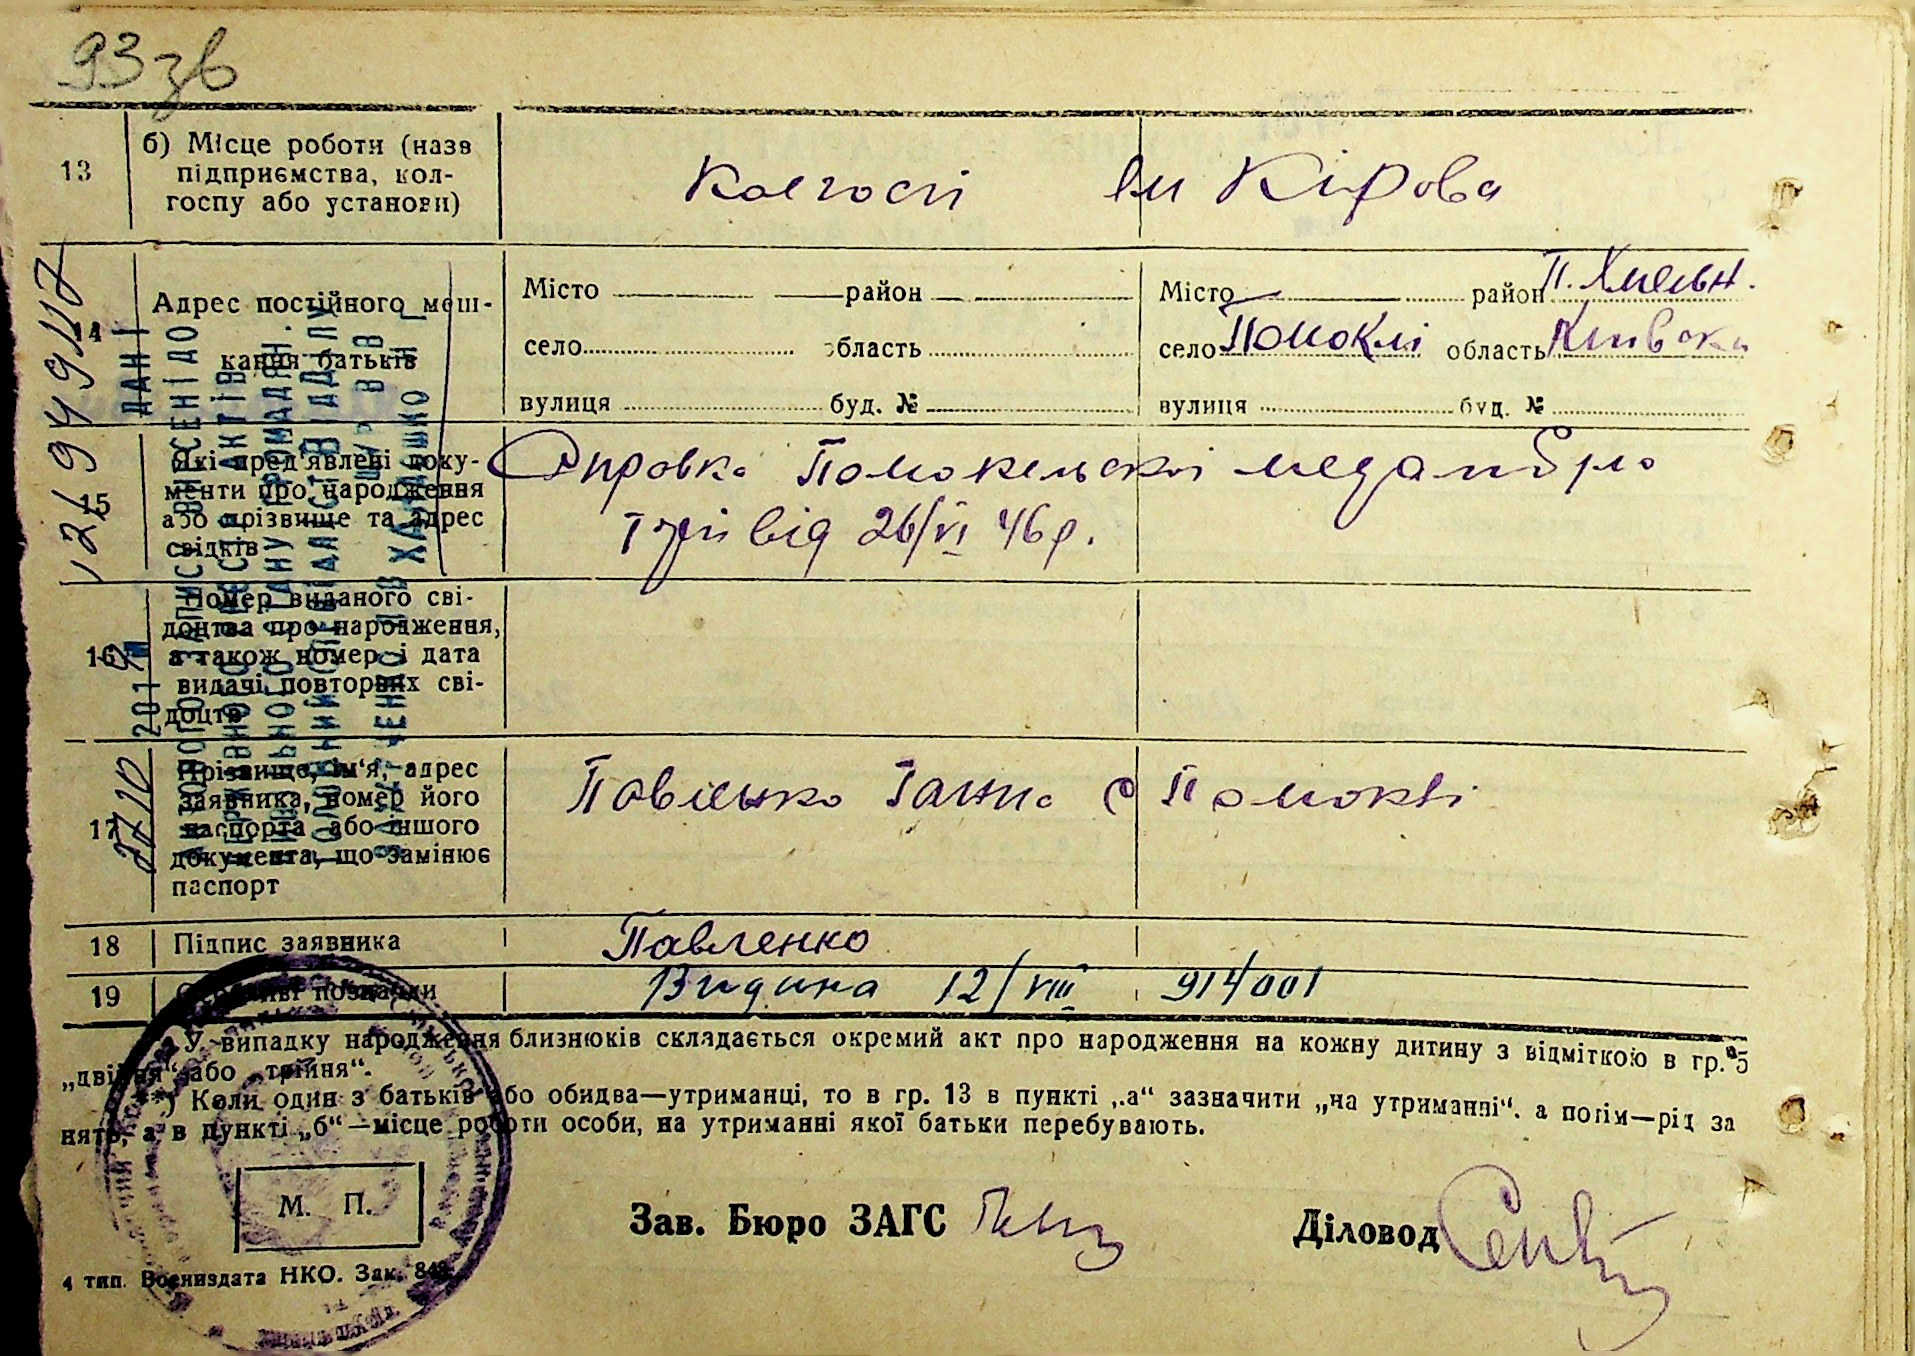 93зв
13 б) Місце роботи (назв підприємства, кол-госпу або установи)
Колгосп ім Кірова
14 Адрес постійного меш-кання батьків
Місто район
село область
вулиця буд. №
Місто район П. Хмельн.
село Помоклі область Київська
вулиця буд. №
15 Які пред'явлені доку-
менти про народження
або прізвище та адрес
свідків
Справка Помокельскої
від 26/VI 46р.
16 Номер виданого сві-
доцтва про народження,
а також номер і дата
видачі повторних сві-
доцтв
17 Прізвище, ім'я, адрес
заявника, номер його
паспорта або іншого
документа, що замінює
паспорт
Павленко Ганна с Помоклі
18 Підпис заявника Павленко
19 12/VIII 914001
У випадку народження близнюків складається окремий акт про народження на кожну дитину з відміткою в гр. 5
„двійня“ або „трійня“.
**) Коли один з батьків або обидва—утриманці, то в гр. 13 в пункті „а“ зазначити „на утриманні“. а потім—рід за
нять, а в пункті „б“—місце роботи особи, на утриманні якої батьки перебувають.
М. П.
Зав. Бюро ЗАГС
Діловод
4 тип. Воениздата НКО. Зак.
ДАНІ
2017
27 10